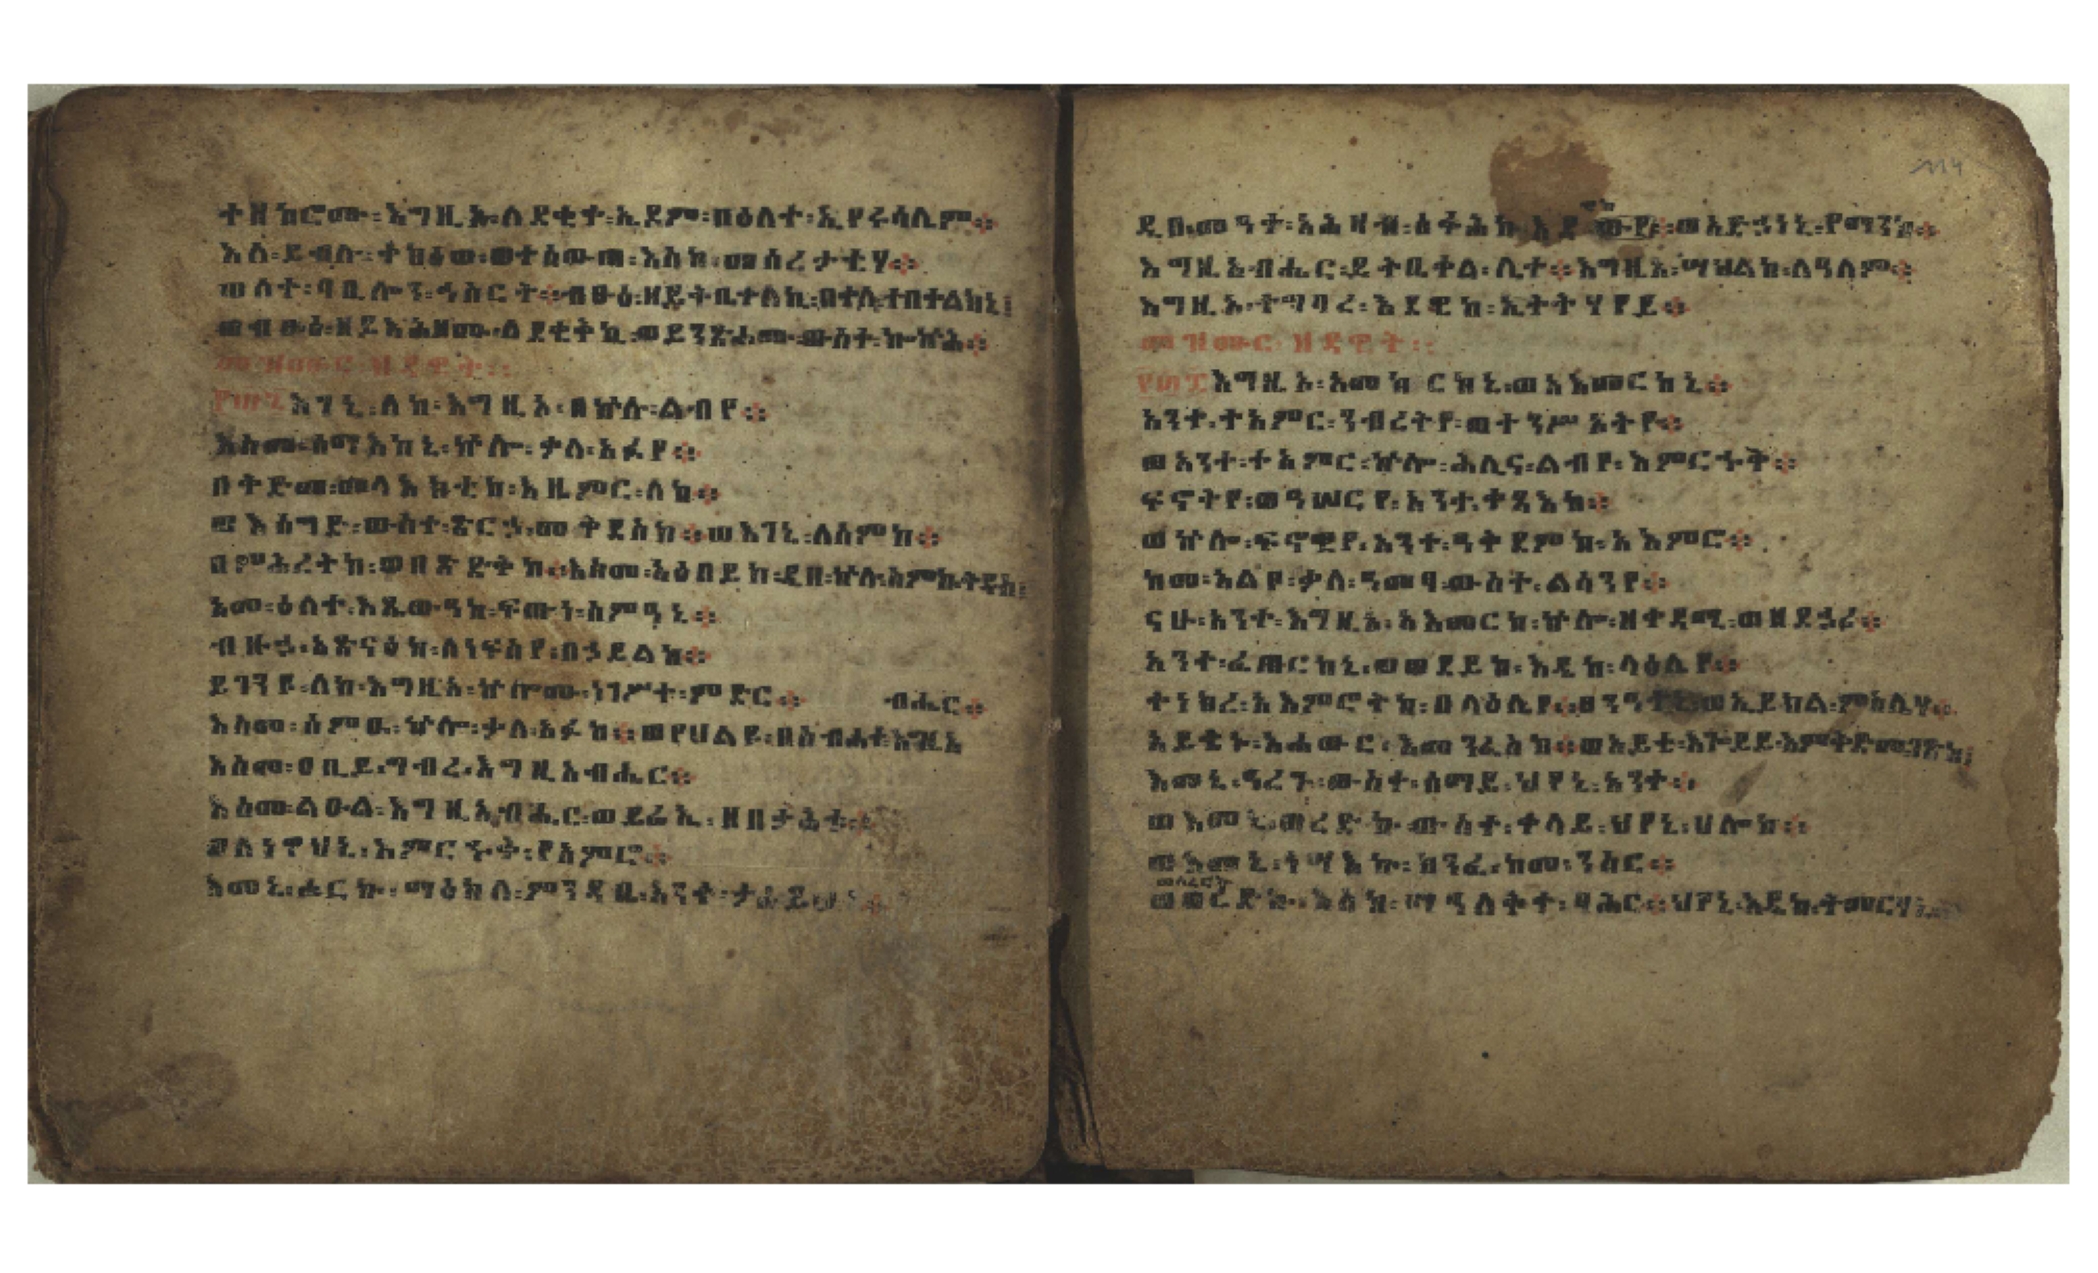 ተዘከሮሙ፡እግዚኦ፡ለደቂቀ፡ኤዶም፡በዕለተ፡ኢየሩሳሌም።
እለ፡ይብሉ፡ንሥቱ፡እስከ፡መሰረታቲሃ።
ወለተ፡ባቢሎን፡ኅስርት።ብፁዕ፡ዘይትቤቀለኪ፡በቀለ፡ተበቀልከነ፤
ወብፁዕ፡ዘይእኅዞሙ፡ለደቂቅኪ፡ወይነጽሖሙ፡ውስተ፡ኰኵሕ።
መዝሙር፡ዘዳዊት።
እገኒ፡ለከ፡እግዚኦ፡በኵሉ፡ልብየ።
እስመ፡ሰማእከኒ፡ኵሎ፡ቃለ፡አፉየ።
በቅድመ፡መላእክቲከ፡እዜምር፡ለከ።
ወእሰግድ፡ውስተ፡ጽርኀ፡መቅደስከ።ወእገኒ፡ለስምከ።
በምሕረትከ፡ወበጽድቅከ።እስመ፡አዕበይከ፡ዲበ፡ኵሉ፡ስምከ፡ቅዱሰ፤
አመ፡ዕለተ፡እጼውዓከ፡ፍጡነ፡ስምዓኒ።
ብዙኃ፡አጽናዕከ፡ለነፍስየ፡በኃይልከ።
ይገንዩ፡ለከ፡እግዚኦ፡ኵሎሙ፡ነገሥተ፡ምድር። ብሔር።
እስመ፡ሰምዑ፡ኵሎ፡ቃለ፡አፉከ።ወየሀልዩ፡በስብሐተ፡እግዚአ
እስመ፡ዐቢይ፡ግብረ፡እግዚአብሔር።
እስመ፡ልዑል፡እግዚአብሔር፡ወይሬኢ፡ዘበታሕቱ።
ወለነዋኅኒ፡እምርኁቅ፡የአምሮ።
እመኒ፡ሖርኩ፡ማዕከለ፡ምንዳቤ፡አንተ፡ታሐይወኒ።
ዲበ፡መዓተ፡አሕዛብ፡ሰፋሕከ፡እዴ፡ወአድኃነኒ፡የማንከ።
እግዚአብሔር፡ይትቤቀል፡ሊተ።እግዚኦ፡ሣህልከ፡ለዓለም።
እግዚኦ፡ተግባረ፡እደዊከ፡ኢትትሃየይ።
መዝሙር፡ዘዳዊት።
እግዚኦ፡አመከርከኒ፡ወአእመርከኒ።
አንተ፡ተአምር፡ንብረትየ፡ወተንሥኦትየ።
ወአንተ፡ተአምር፡ኵሎ፡ሕሊና፡ልብየ፡እምርኁቅ።
ፍኖትየ፡ወዓሠርየ፡አንተ፡ቀጻእከ።
ወኵሎ፡ፍናዊየ፡አንተ፡ዓቅደምከ፡አእምሮ።
ከመ፡አልቦ፡ቃለ፡ዓመፃ፡ውስተ፡ልሳንየ።
ናሁ፡አንተ፡እግዚኦ፡አእመርከ፡ኵሎ፡ዘቀዳሚ፡ወዘደኃሪ።
አንተ፡ፈጠርከኒ፡ወወደይከ፡እዴከ፡ላዕሌየ።
ተነክረ፡አእምሮትከ፡በላዕሌየ።ጸንዓተኒ፡ወኢይክል፡ምስሌሃ።
አይቴኑ፡አሐውር፡እመንፈስከ።ወአይቴ፡እጐይይ፡እምቅድመ፡ገጽከ፤
እመኒ፡ዓረጉ፡ውስተ፡ሰማይ፡ህየኒ፡አንተ።
ወእመኒ፡ወረድኩ፡ውስተ፡ቀላይ፡ህየኒ፡ሀሎከ።
ወእመኒ፡ነሣእኩ፡ክንፈ፡ከመ፡ንስር።
ወወረድኩ፡እስከ፡ማኅለቅተ፡ባሕር።ህየኒ፡እዴከ፡ትመርሃኒ።